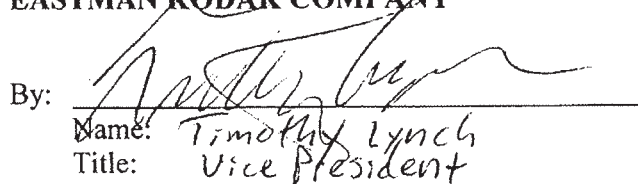 EASTMAN KODAK COMPANY
By:
Name: Timothy Lynch
Title: Vice President